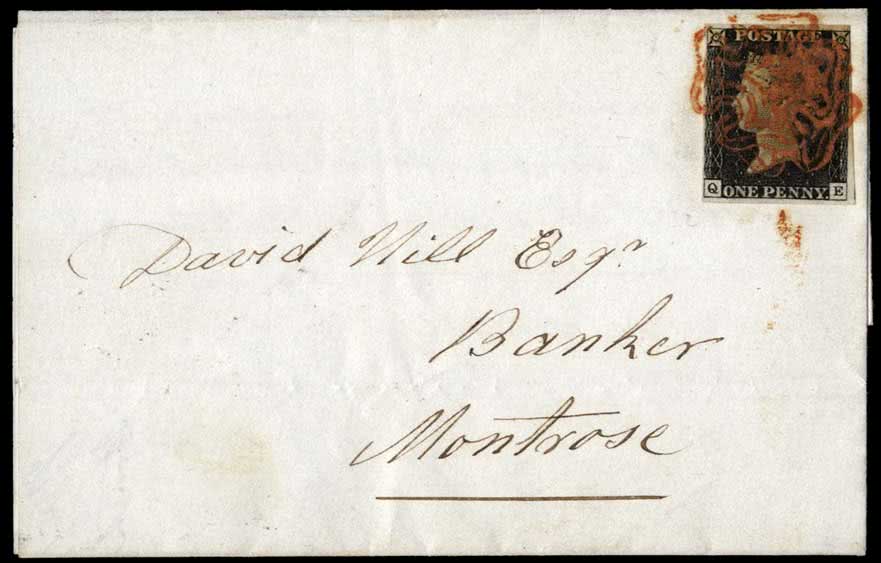 POSTAGE
Q ONE PENNY. E
David Hill Esqr
Banker
Montrose